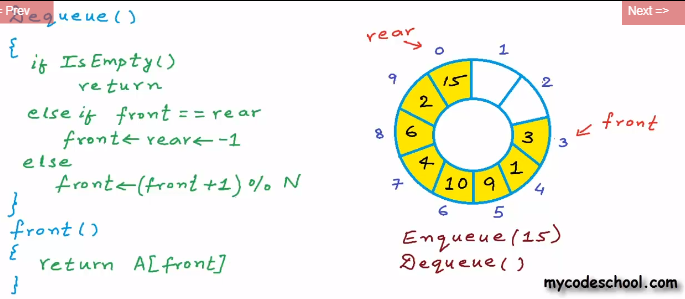 <= Prev
Next =>
Dequeue()
{
if IsEmpty()
return
else if front == rear
front ← rear ← -1
else
front ← (front + 1) % N
}
front()
{
return A[front]
}
rear
0
1
2
3
4
5
6
7
8
9
15
2
6
4
10
9
1
3
front
Enqueue(15)
Dequeue()
mycodeschool.com